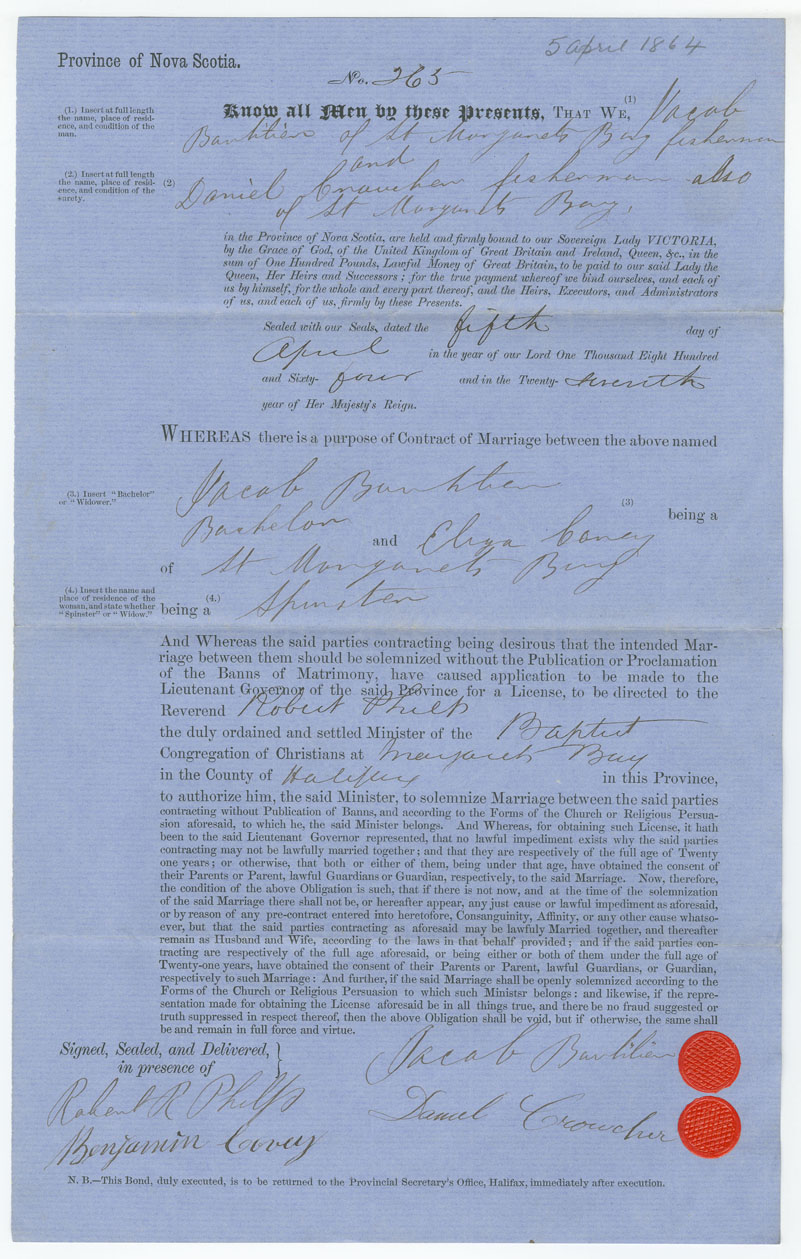 5 april 1864
Province of Nova Scotia.
No. 265
(1.) Insert at full length
the name, place of resid-
ence, and condition of the
man.
Know all Men by these Presents, THAT WE, (1) Jacob
of St Margarets Bay fisherman
and
(2.) Insert at full length
the name, place of resid-
ence, and condition of the
surety.
(2) Daniel Croucher fisherman also
of St Margarets Bay,
in the Province of Nova Scotia, are held and firmly bound to our Sovereign Lady VICTORIA,
by the Grace of God, of the United Kingdom of Great Britain and Ireland, Queen, &c., in the
sum of One Hundred Pounds, Lawful Money of Great Britain, to be paid to our said Lady the
Queen, Her Heirs and Successors; for the true payment whereof we bind ourselves, and each of
us by himself, for the whole and every part thereof, and the Heirs, Executors, and Administrators
of us, and each of us, firmly by these Presents.
Sealed with our Seals, dated the fifth day of
April in the year of our Lord One Thousand Eight Hundred
and Sixty- four and in the Twenty- seventh
year of Her Majesty's Reign.
WHEREAS there is a purpose of Contract of Marriage between the above named
(3.) Insert "Bachelor"
or "Widower."
Jacob
(3) being a
Bachelor and Eliza
of St Margarets Bay
(4.) Insert the name and
place of residence of the
woman, and state whether
"Spinster" or "Widow."
being a (4.) Spinster
And Whereas the said parties contracting being desirous that the intended Mar-
riage between them should be solemnized without the Publication or Proclamation
of the Banns of Matrimony, have caused application to be made to the
Lieutenant Governor of the said Province for a License, to be directed to the
Reverend Robert Phelps
the duly ordained and settled Minister of the Baptist
Congregation of Christians at Margarets Bay
in the County of Halifax in this Province,
to authorize him, the said Minister, to solemnize Marriage between the said parties
contracting without Publication of Banns, and according to the Forms of the Church or Religious Persua-
sion aforesaid, to which he, the said Minister belongs. And Whereas, for obtaining such License, it hath
been to the said Lieutenant Governor represented, that no lawful impediment exists why the said parties
contracting may not be lawfully married together; and that they are respectively of the full age of Twenty
one years; or otherwise, that both or either of them, being under that age, have obtained the consent of
their Parents or Parent, lawful Guardians or Guardian, respectively, to the said Marriage. Now, therefore,
the condition of the above Obligation is such, that if there is not now, and at the time of the solemnization
of the said Marriage there shall not be, or hereafter appear, any just cause or lawful impediment as aforesaid,
or by reason of any pre-contract entered into heretofore, Consanguinity, Affinity, or any other cause whatso-
ever, but that the said parties contracting as aforesaid may be lawfuly Married together, and thereafter
remain as Husband and Wife, according to the laws in that behalf provided; and if the said parties con-
tracting are respectively of the full age aforesaid, or being either or both of them under the full age of
Twenty-one years, have obtained the consent of their Parents or Parent, lawful Guardians, or Guardian,
respectively to such Marriage: And further, if the said Marriage shall be openly solemnized according to the
Forms of the Church or Religious Persuasion to which such Ministsr belongs; and likewise, if the repre-
sentation made for obtaining the License aforesaid be in all things true, and there be no fraud suggested or
truth suppressed in respect thereof, then the above Obligation shall be void, but if otherwise, the same shall
be and remain in full force and virtue.
Signed, Sealed, and Delivered,
in presence of
Jacob
Robert R Phelps
Daniel Croucher
Benjamin Covey
N. B.—This Bond, duly executed, is to be returned to the Provincial Secretary's Office, Halifax, immediately after execution.